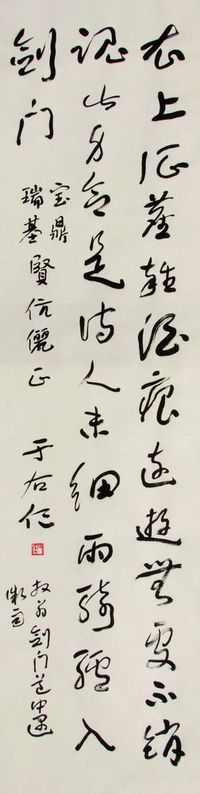 衣上征塵雜酒痕遠遊無處不銷
魂此身合是詩人未細雨騎驢入
劍門
寶鼎
瑞基賢伉儷正
于右任
放翁劍門道中遇
微雨